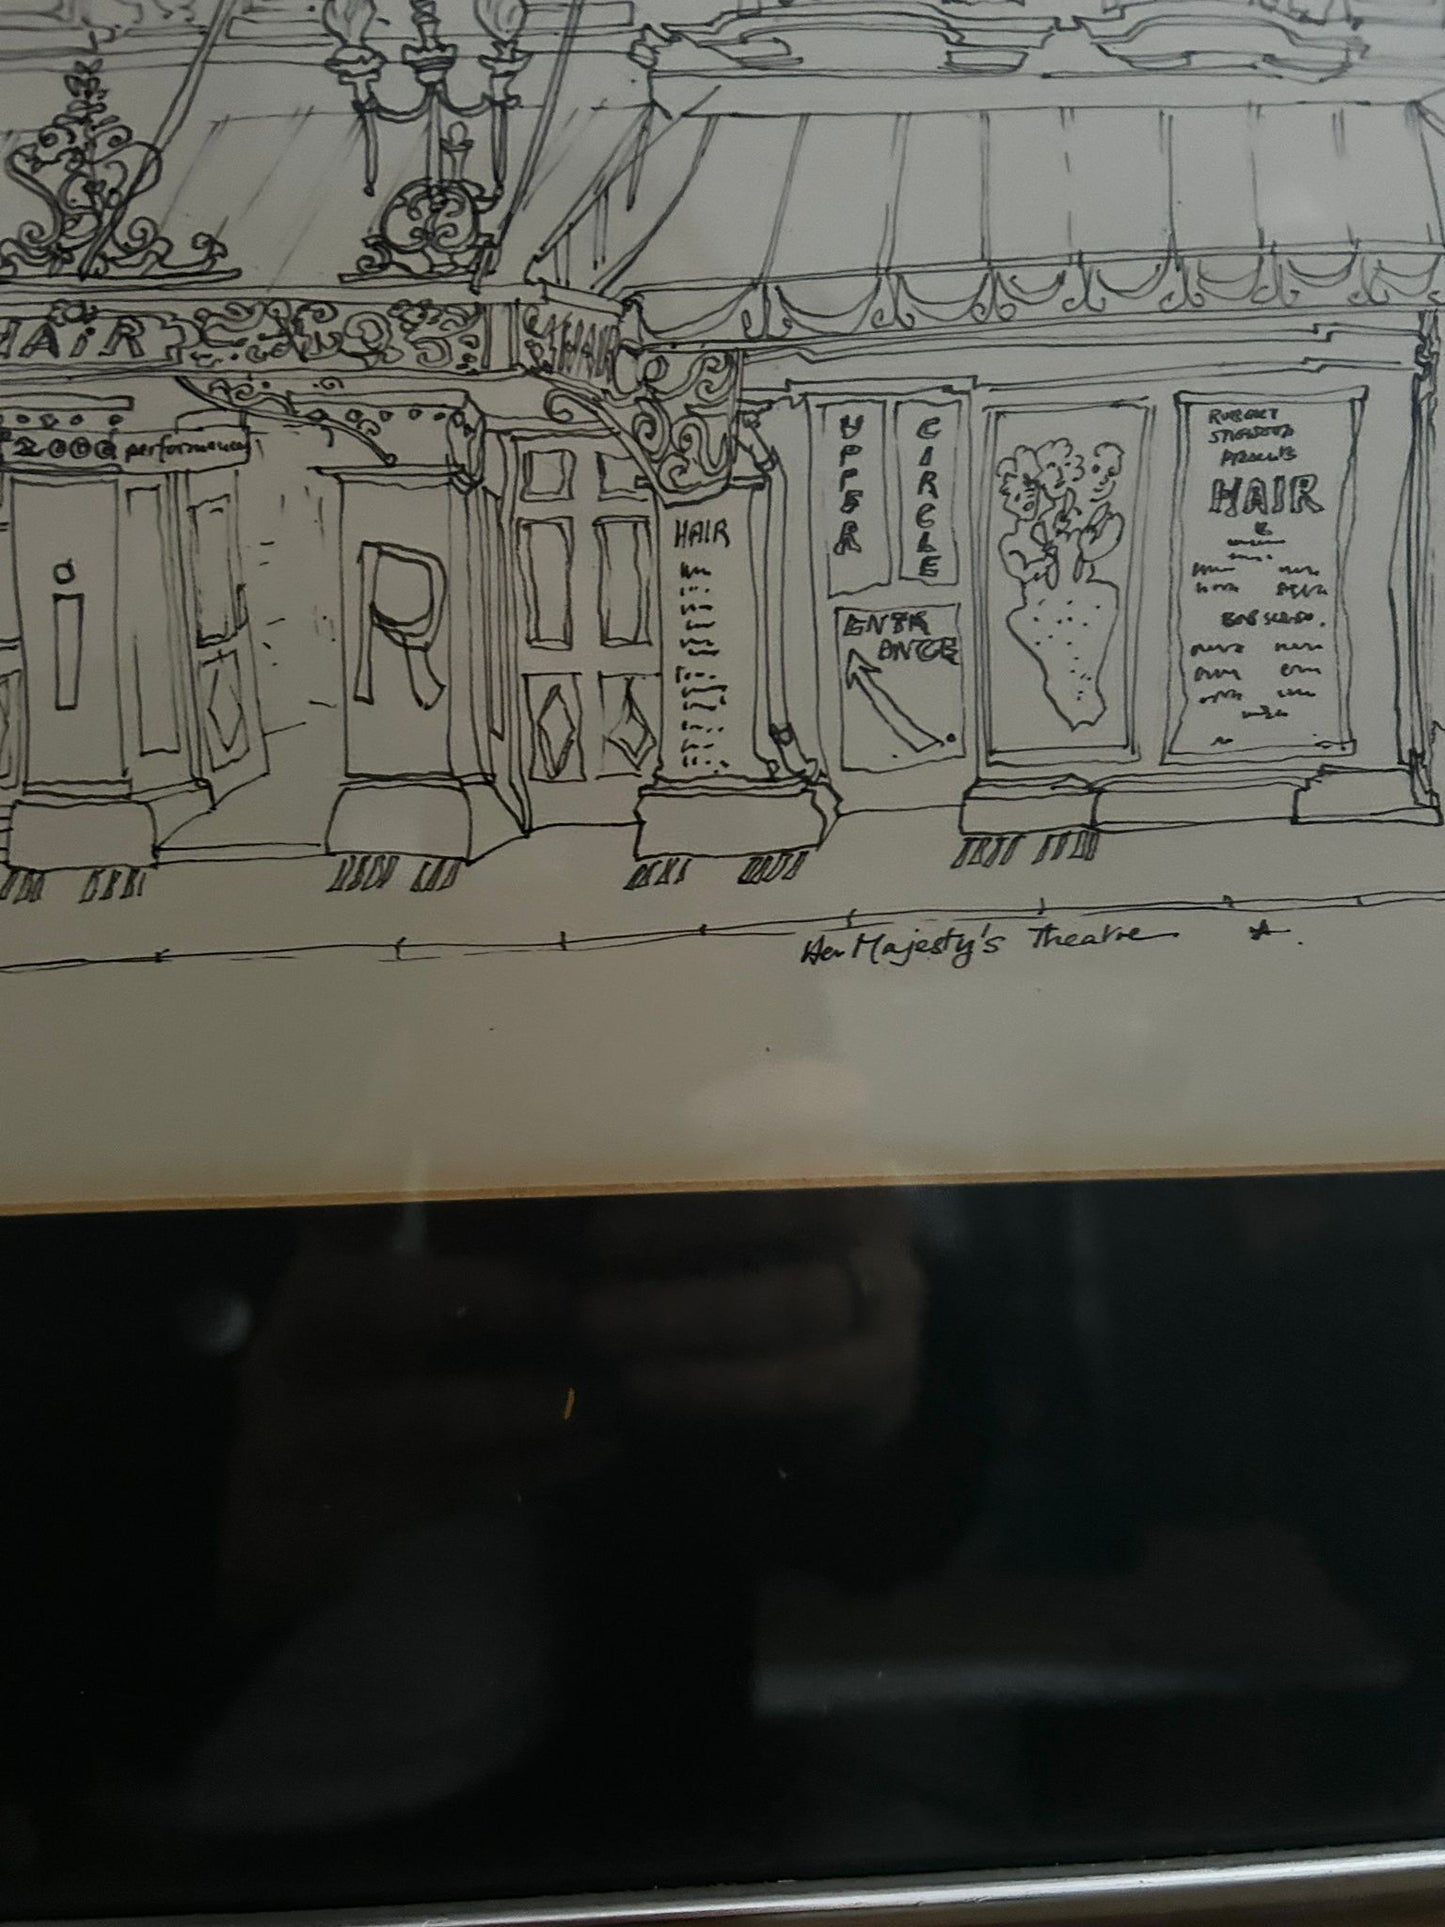 HAiR
HAIR
2000 performances
i
R
HAIR
UPPER
CIRCLE
ENTR
ANCE
ROBERT
STIGWOOD
PRESENTS
HAIR
Her Majesty's Theatre